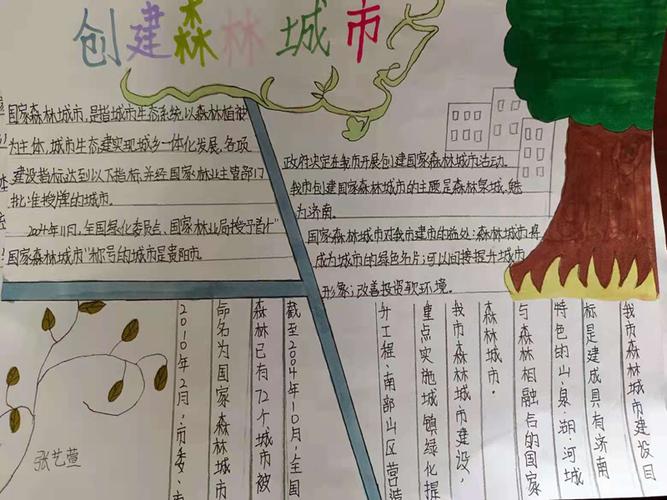 创建森林城市
国家森林城市,是指城市生态系统以森林植被
为主体,城市生态建实现城乡一体化发展,各项
建设指标达到以下指标,并经国家林业主管部门
批准授牌的城市。
2004年11月,全国绿化委员会、国家林业局授予首个"
国家森林城市"称号的城市是贵阳市。
政府决定在我市开展创建国家森林城市活动。
我市创建国家森林城市的主题是森林泉城,魅
为济南。
国家森林城市对我市建市的施处:森林城市将
成为城市的绿色名片;可以间接提升城市
形象;改善投资软环境。
我市森林城市建设目
标是建成具有济南
特色的山·泉·湖·河城
与森林相融后的国家
森林城市。
我市森林城市建设,
重点实施城镇绿化提
升工程、南部山区营造
截至2004年10月,全国
森林已有72个城市被
命名为国家森林城市
2010年2月,市委、市
张艺萱